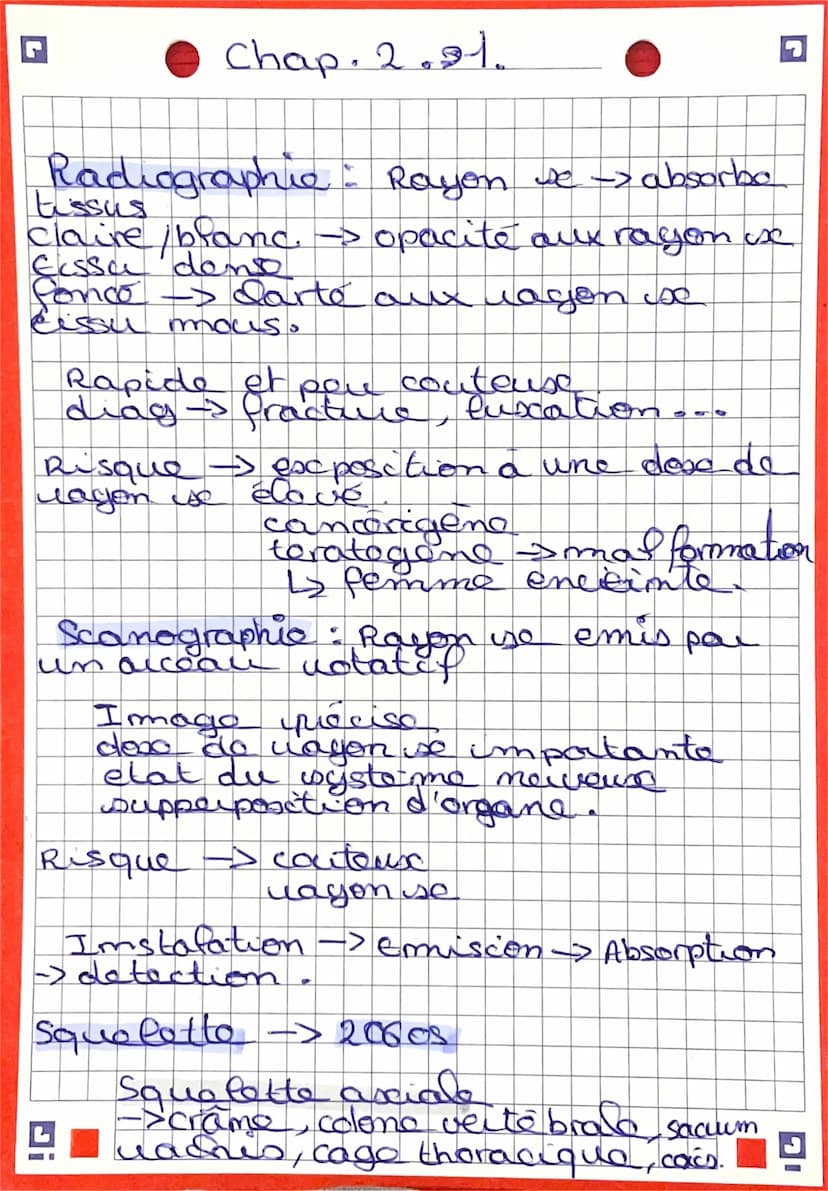 Chap. 2.
Radiographie : Rayon x -> absorbe
tissus
claire /blanc -> opacité aux rayon x
tissu dense
foncé -> clarté aux rayon x
tissu mous.
Rapide et peu couteuse
diag -> fracture, luxation...
Risque -> exposition à une dose de
rayon x élevé.
cancérigène
teratogène -> malformation
↳ femme enceinte.
Scanographie : Rayon x emis par
un arceau rotatif
Image précise
dose de rayon x importante
etat du système nerveux
supperposition d'organe.
Risque -> couteux
rayon x
Installation -> emission -> Absorption
-> detection.
Squelette -> 206 os
Squelette axiale
-> crâne, colone vertébrale, sacrum
cage thoracique,